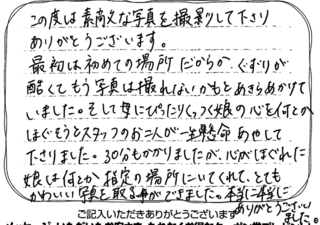 この度は素敵な写真を撮影して下さり
ありがとうございます。
最初は初めての場所だからか、ぐずりが
酷くてもう写真は撮れないかもとあきらめかけて
いました。そして母にぴったりくっつく娘の心を何とか
ほぐそうとスタッフのお二人が一生懸命あやして
下さりました。30分もかかりましたが、心がほぐれた
娘は何とか指定の場所にいてくれて、とても
かわいい写真を取る事ができました。本当に本当に
ありがとうござい
ました。
ご記入いただきありがとうございます